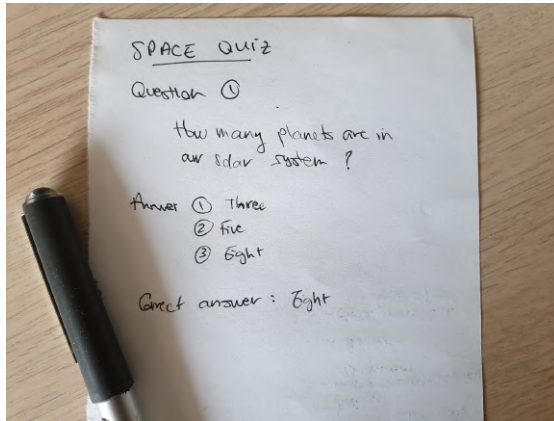 SPACE QUIZ
Question ①
How many planets are in
our solar system ?
Answer ① Three
② Five
③ Eight
Correct answer : Eight